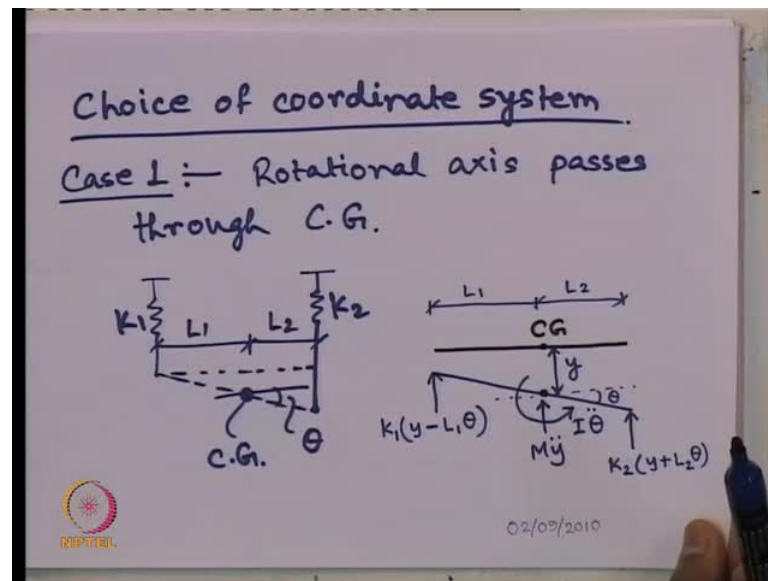 Choice of coordinate system
Case 1 :— Rotational axis passes
through C.G.
K1
L1
L2
K2
C.G.
θ
L1
L2
CG
y
θ
K1(y-L1θ)
Mÿ
Iθ̈
K2(y+L2θ)
02/09/2010
NPTEL